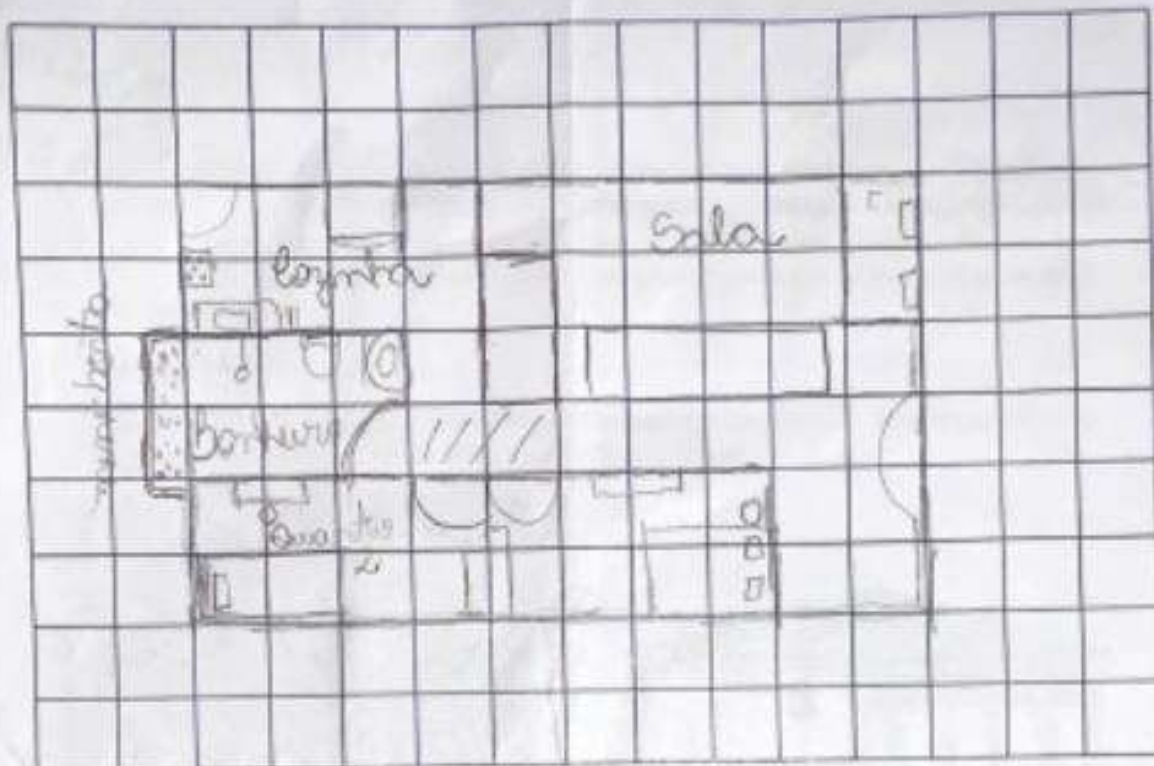 Sala
Cozinha
Banheiro
Quartos
2